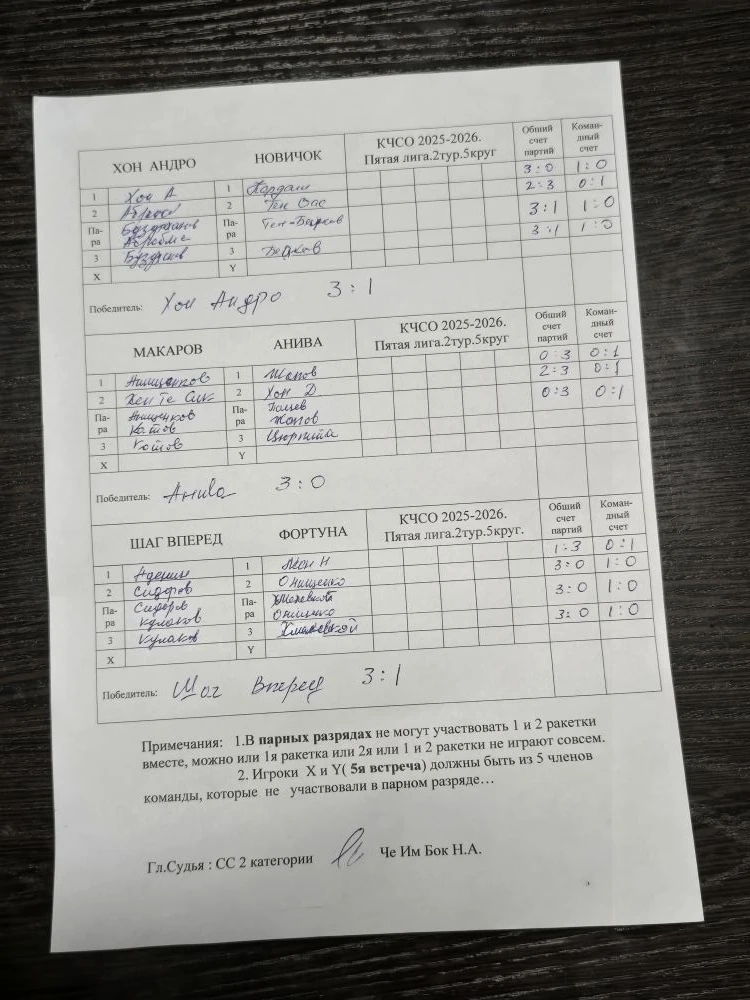 ХОН АНДРО НОВИЧОК КЧСО 2025-2026. Пятая лига.2тур.5круг Общий счет партий Коман-дный счет
1 Хон А 1 Кардаш 3:0 1:0
2 2 Тен Вас 2:3 0:1
Па-ра Па-ра Тен- 3:1 1:0
3 3 3:1 1:0
X Y
Победитель: Хон Андро 3:1
МАКАРОВ АНИВА КЧСО 2025-2026. Пятая лига.2тур.5круг Общий счет партий Коман-дный счет
1 Анищенков 1 0:3 0:1
2 Хен Те Сик 2 Хон Д 2:3 0:1
Па-ра Анищенков Котов Па-ра 0:3 0:1
3 Котов 3
X Y
Победитель: Анива 3:0
ШАГ ВПЕРЕД ФОРТУНА КЧСО 2025-2026. Пятая лига.2тур.5круг. Общий счет партий Коман-дный счет
1 Аденин 1 1:3 0:1
2 Сидоров 2 Онищенко 3:0 1:0
Па-ра Сидоров Кулаков Па-ра Онищенко 3:0 1:0
3 Кулаков 3 3:0 1:0
X Y
Победитель: Шаг Вперед 3:1
Примечания: 1.В парных разрядах не могут участвовать 1 и 2 ракетки
вместе, можно или 1я ракетка или 2я или 1 и 2 ракетки не играют совсем.
2. Игроки X и Y( 5я встреча) должны быть из 5 членов
команды, которые не участвовали в парном разряде…
Гл.Судья : СС 2 категории Че Им Бок Н.А.